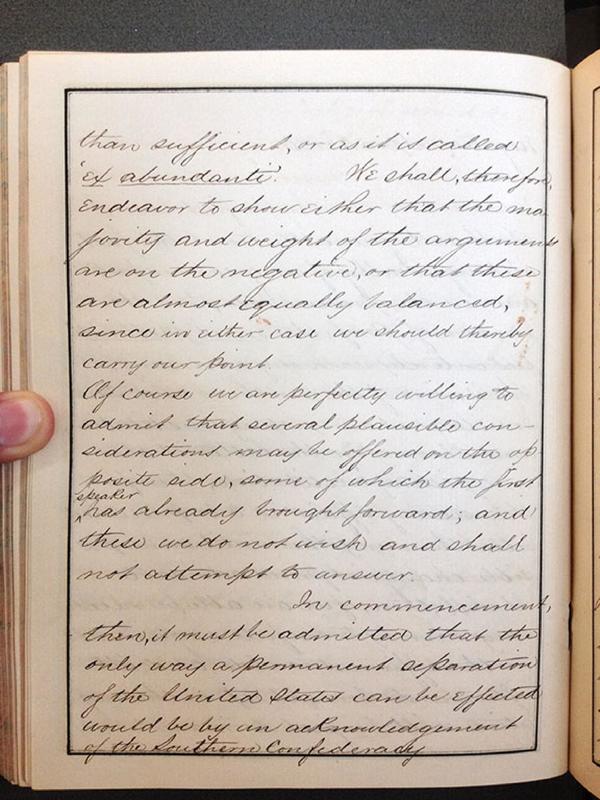 than sufficient, or as it is called
'ex abundanti'. We shall, therefore,
endeavor to show either that the ma-
jority and weight of the arguments
are on the negative, or that these
are almost equally balanced,
since in either case we should thereby
carry our point.
Of course we are perfectly willing to
admit that several plausible con-
siderations may be offered on the op
posite side, some of which the first
speaker
^ has already brought forward; and
these we do not wish and shall
not attempt to answer.
In commencement,
then, it must be admitted that the
only way a permanent separation
of the United States can be effected
would be by an acknowledgement
of the Southern Confederacy